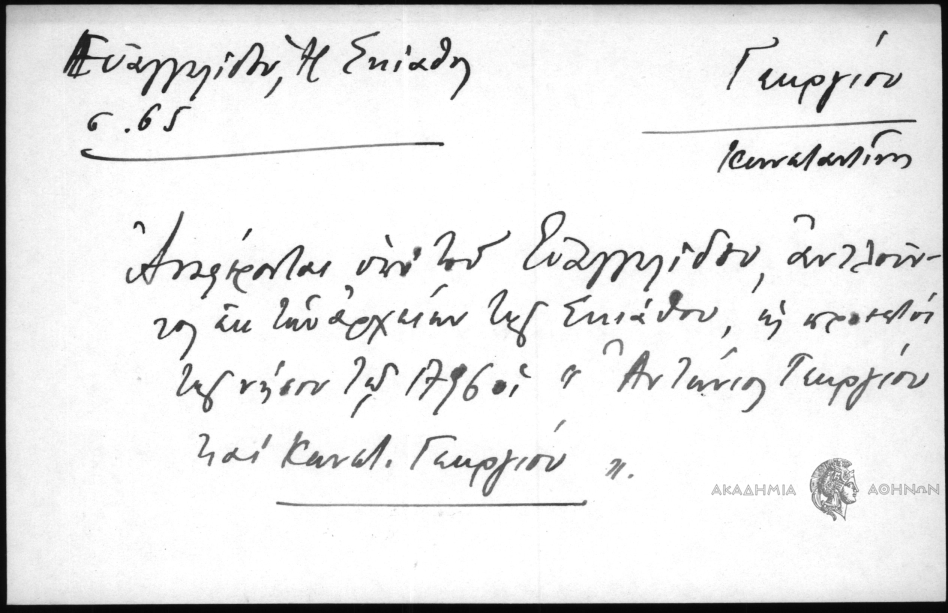 Εὐαγγελίδου, Ἡ Σκίαθος
σ. 65
Γεωργίου
Κωνσταντίνος
Ἀναφέρονται ὑπὸ τοῦ Εὐαγγελίδου, ἀντλοῦν-
τος ἐκ τῶν ἀρχείων τῆς Σκιάθου, ὡς προεστοί
τῆς νήσου τῷ 1796 οἱ "Ἀντώνιος Γεωργίου
καὶ Κωνστ. Γεωργίου".
ΑΚΑΔΗΜΙΑ ΑΘΗΝΩΝ